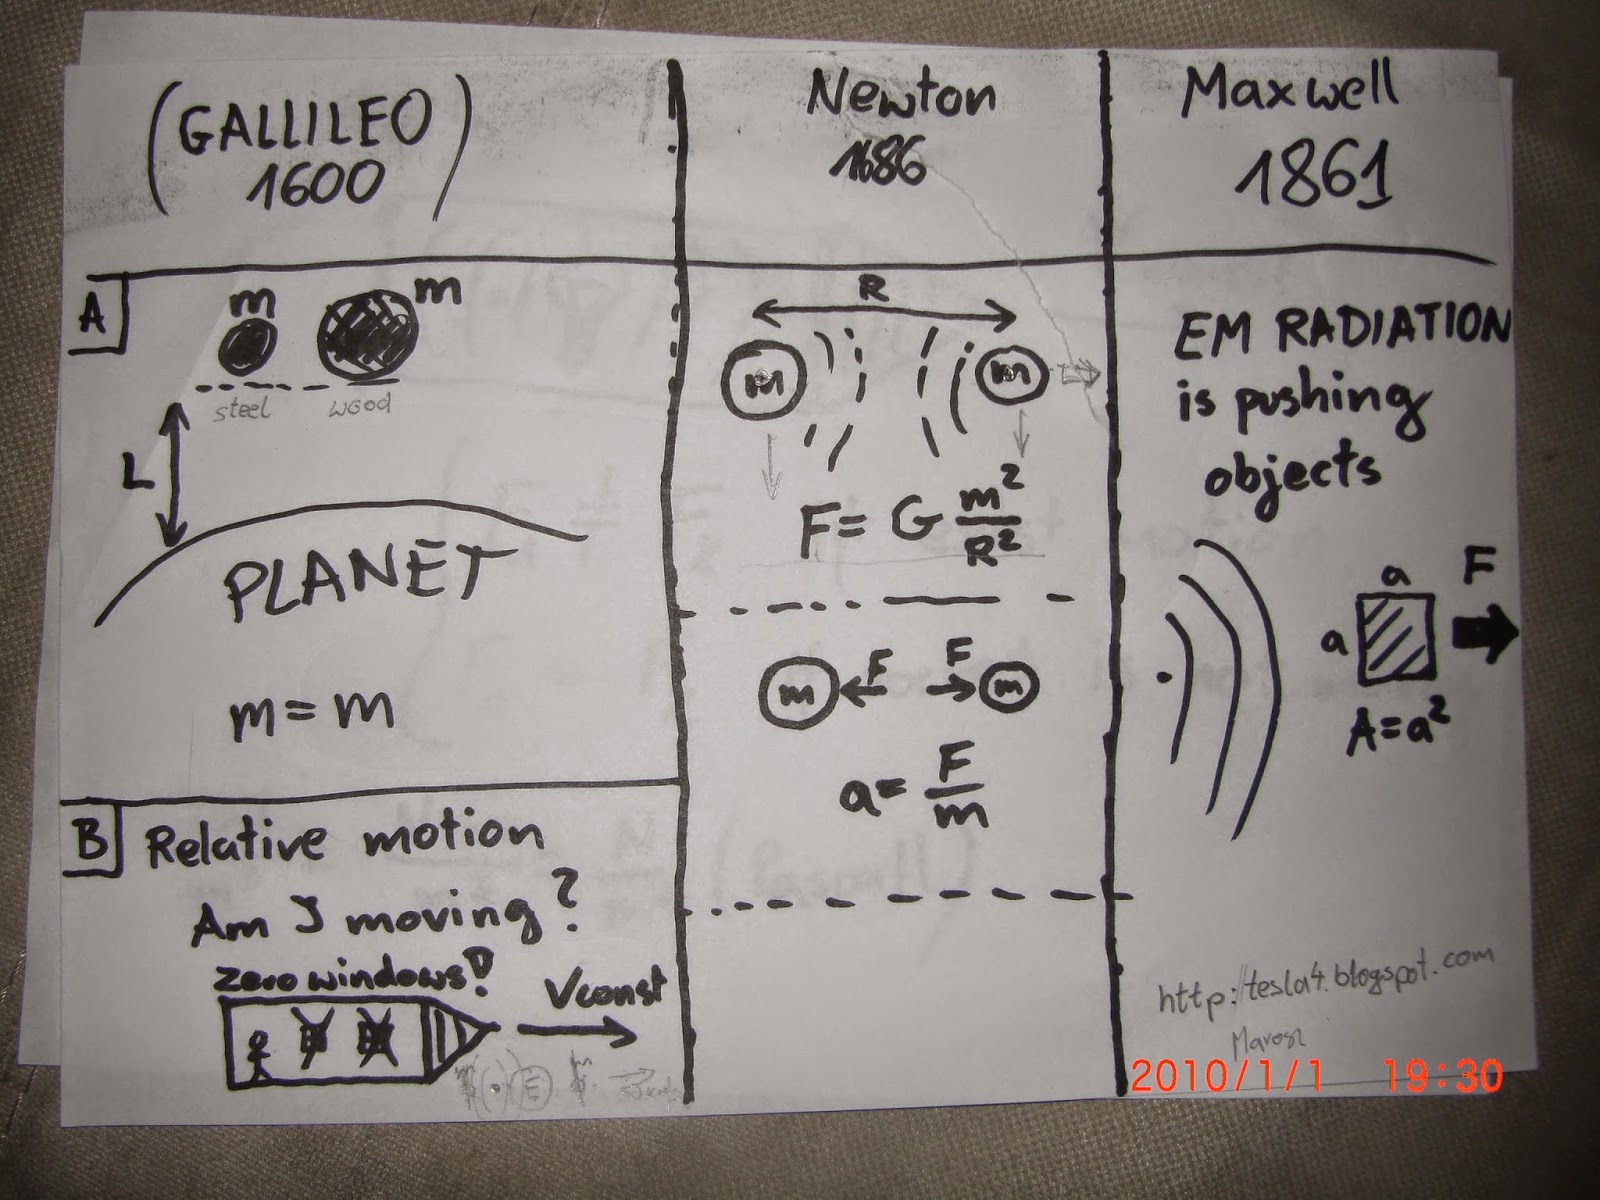 (GALLILEO)
1600
A
m
m
steel
wood
L
PLANET
m = m
B
Relative motion
Am I moving?
zero windows?
Vconst
Newton
1686
R
m
m
F = G m²/R²
m
F
F
m
a = F/m
Maxwell
1861
EM RADIATION
is pushing
objects
a
F
a
A=a²
http://tesla4.blogspot.com
2010/1/1 19:30